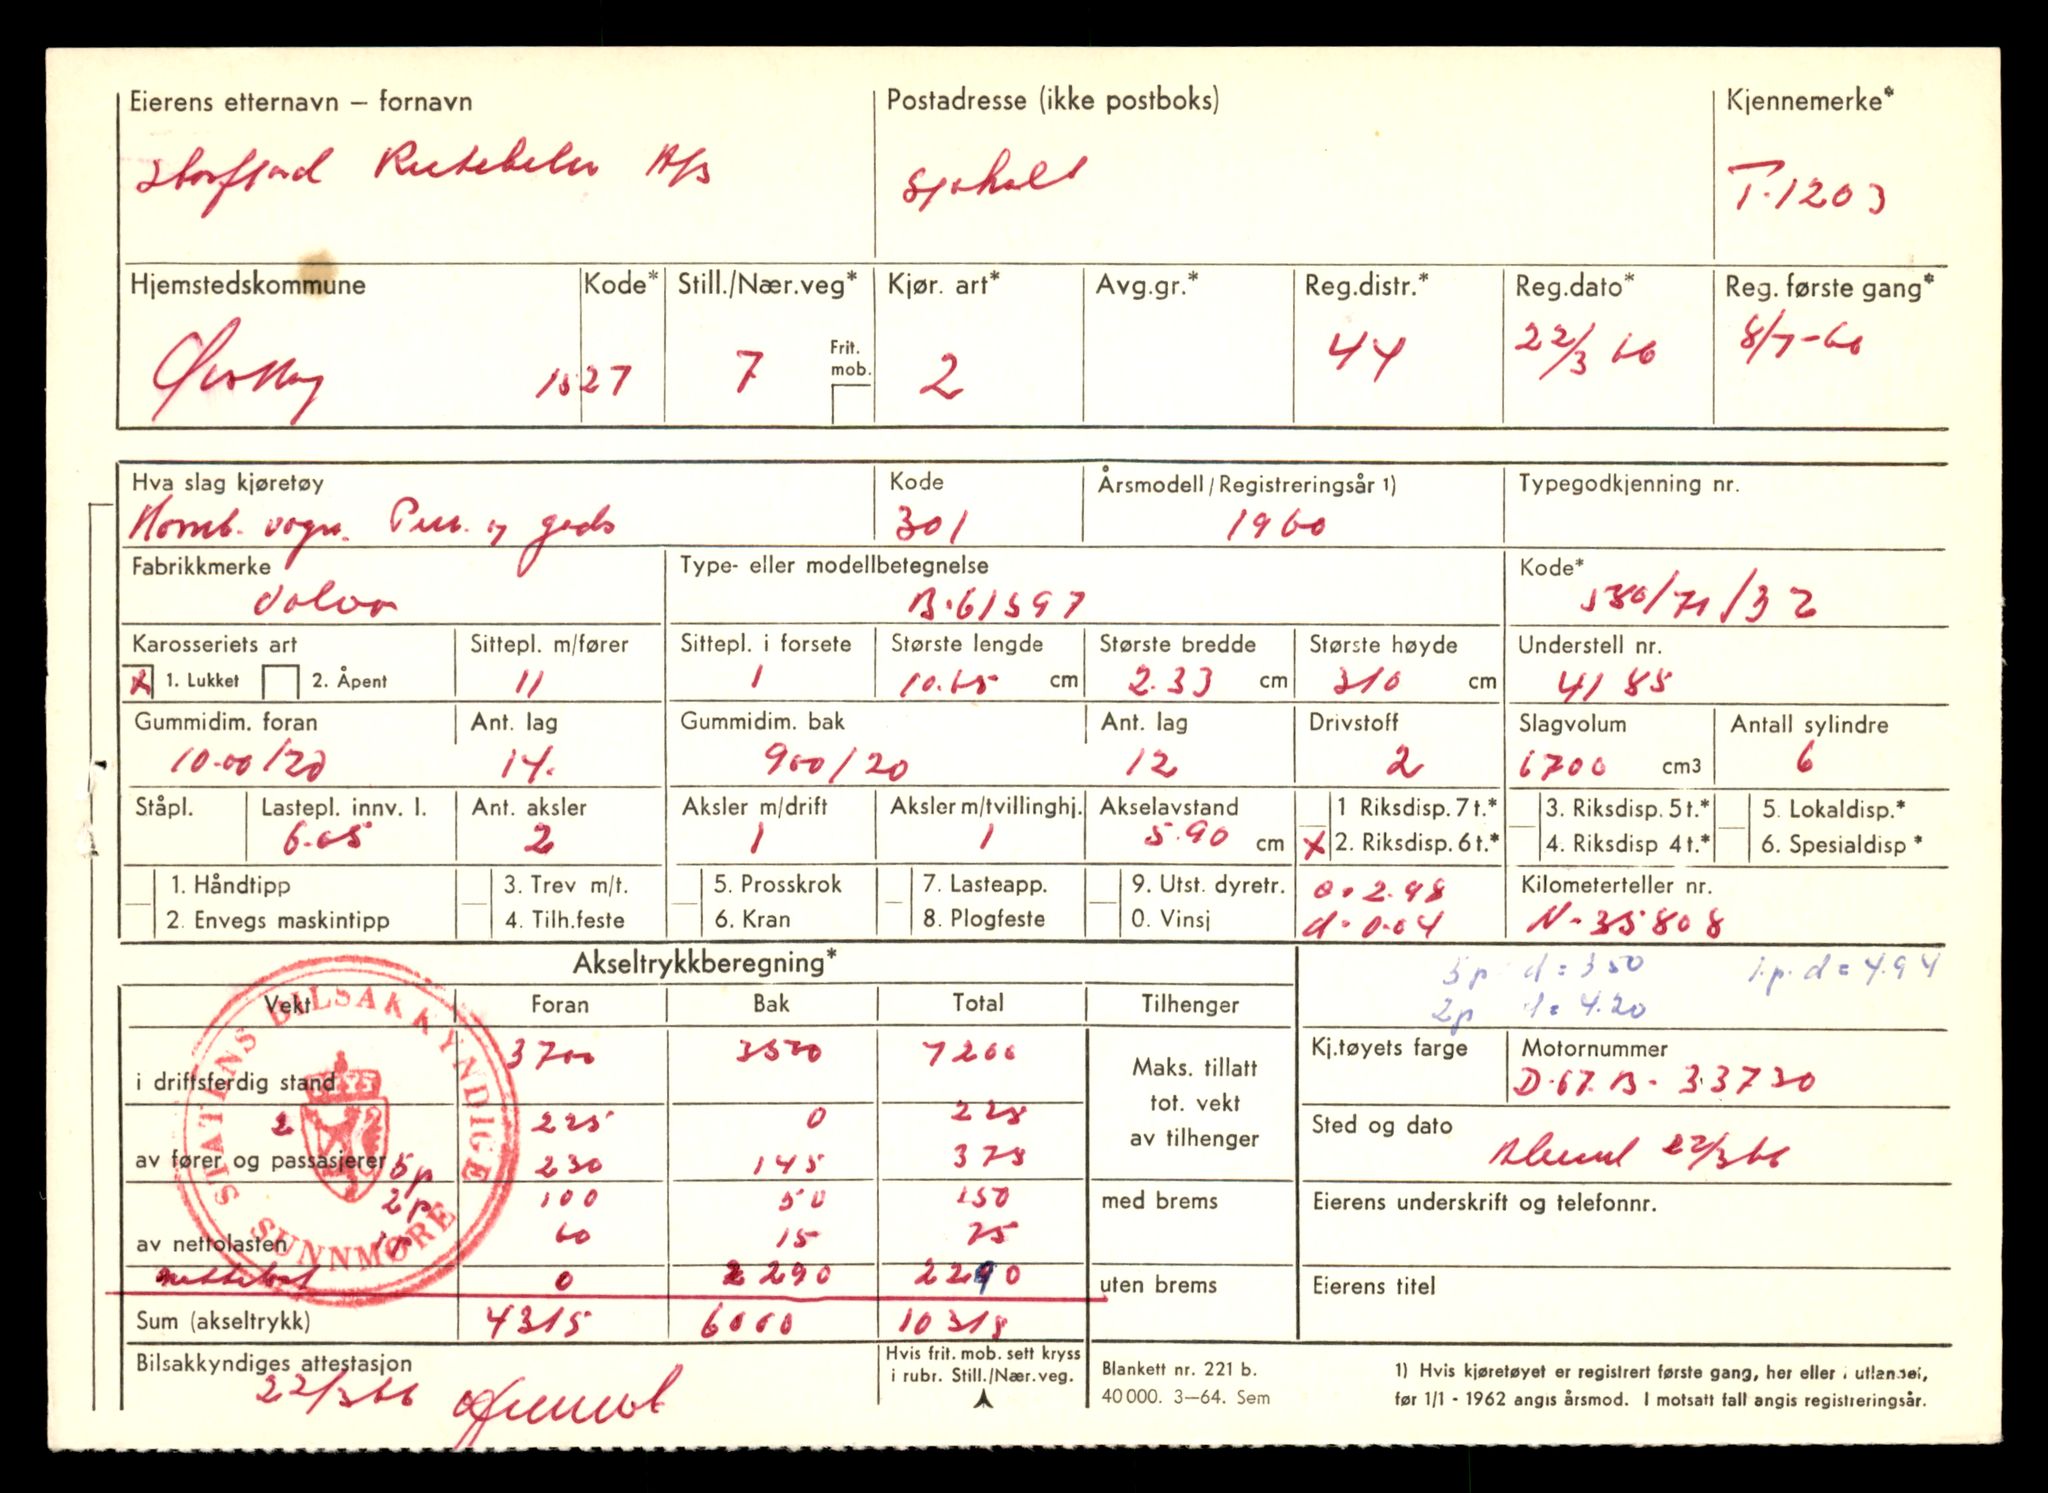 Eierens etternavn – fornavn Postadresse (ikke postboks) Kjennemerke*
Storfjord Rutebiler A/S Sjøholt T-1203
Hjemstedskommune Kode* Still./Nær.veg* Kjør. art* Avg.gr.* Reg.distr.* Reg.dato* Reg. første gang*
Frit. mob.
Ørskog 1527 7 2 44 22/3 66 8/7-60
Hva slag kjøretøy Kode Årsmodell/Registreringsår 1) Typegodkjenning nr.
Komb. vogn. Pers. og gods 301 1960
Fabrikkmerke Type- eller modellbetegnelse Kode*
Volvo B.61597 530/71/32
Karosseriets art Sittepl. m/fører Sittepl. i forsete Største lengde Største bredde Største høyde Understell nr.
x 1. Lukket 2. Åpent 11 1 10.65 cm 2.33 cm 310 cm 4185
Gummidim. foran Ant. lag Gummidim. bak Ant. lag Drivstoff Slagvolum Antall sylindre
10.00/20 14. 900/20 12 2 6700 cm3 6
Ståpl. Lastepl. innv. l. Ant. aksler Aksler m/drift Aksler m/tvillinghj. Akselavstand 1 Riksdisp. 7 t.* 3. Riksdisp. 5 t.* 5. Lokaldisp.*
6.05 2 1 1 5.90 cm x 2. Riksdisp. 6 t.* 4. Riksdisp 4 t.* 6. Spesialdisp *
1. Håndtipp 3. Trev m/t. 5. Prosskrok 7. Lasteapp. 9. Utst. dyretr. 0=2.98 Kilometerteller nr.
2. Envegs maskintipp 4. Tilh.feste 6. Kran 8. Plogfeste 0. Vinsj d=0.04 N-35808
Akseltrykkberegning* 5p d=350 1.p. d=4.94
2p d=4.20
Vekt Foran Bak Total Tilhenger
i driftsferdig stand 3700 3500 7200
Maks. tillatt
tot. vekt
av tilhenger
Kj.tøyets farge Motornummer
D.67.B-33730
2 225 0 225
av fører og passasjerer 5p 230 145 375
Sted og dato
Ålesund 22/3 66
2p 100 50 150 med brems
Eierens underskrift og telefonnr.
av nettolasten 1p 60 15 75
nettolast 0 2290 2290 uten brems
Eierens titel
Sum (akseltrykk) 4315 6000 10315
STATENS BILSAKKYNDIGE
SUNNMØRE
Bilsakkyndiges attestasjon
22/3 66
Hvis frit. mob. sett kryss
i rubr. Still./Nær.veg.
Blankett nr. 221 b.
40 000. 3–64. Sem
1) Hvis kjøretøyet er registrert første gang, her eller i utlandet,
før 1/1 - 1962 angis årsmod. I motsatt fall angis registreringsår.